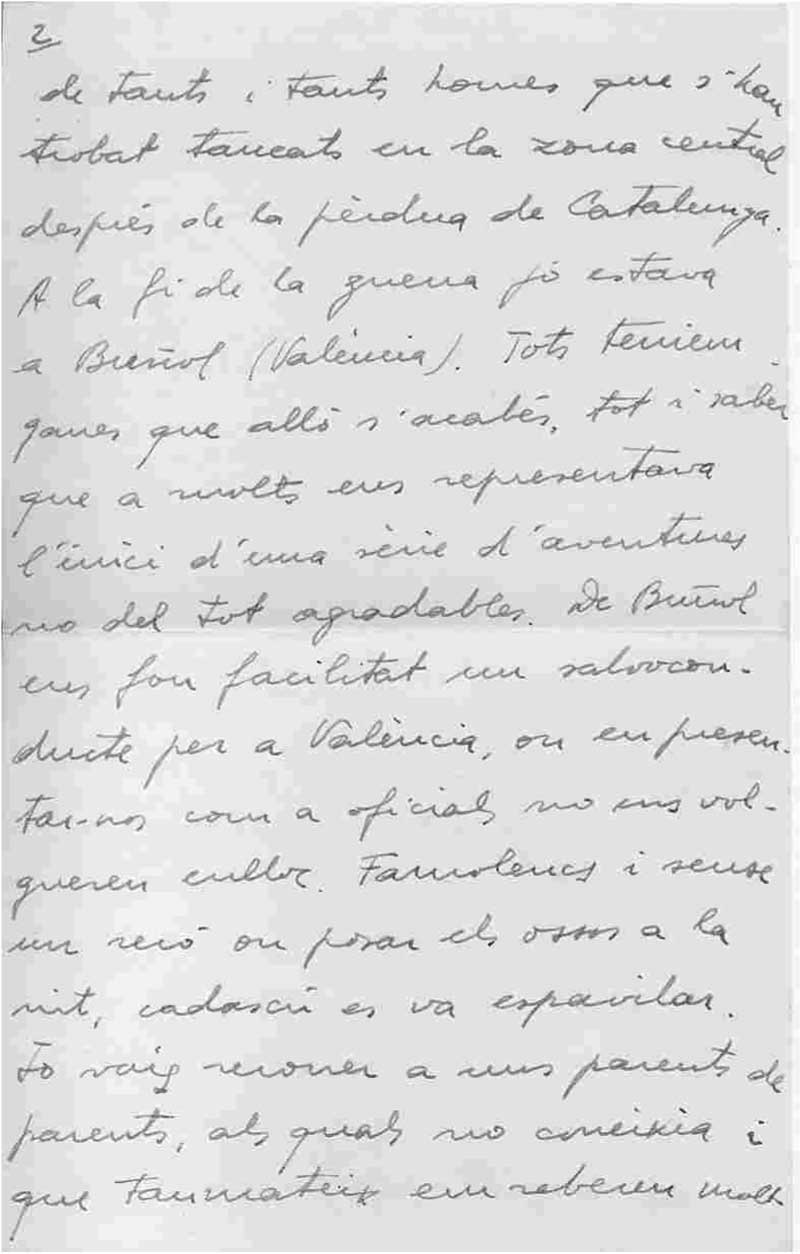 2
de tants i tants homes que s'han
trobat tancats en la zona central
després de la pèrdua de Catalunya.
A la fi de la guerra jo estava
a Buñol (València). Tots teniem
ganes que allò s'acabés, tot i saber
que a molts ens representava
l'inici d'una sèrie d'aventures
no del tot agradables. De Buñol
ens fou facilitat un salvocon-
ducte per a València, on en presen-
tar-nos com a oficials no ens vol-
gueren enlloc. Famolencs i sense
un recó on posar els ossos a la
nit, cadascú es va espavilar.
Jo vaig recorrer a uns parents de
parents, als quals no coneixia i
que tanmateix em reberen molt